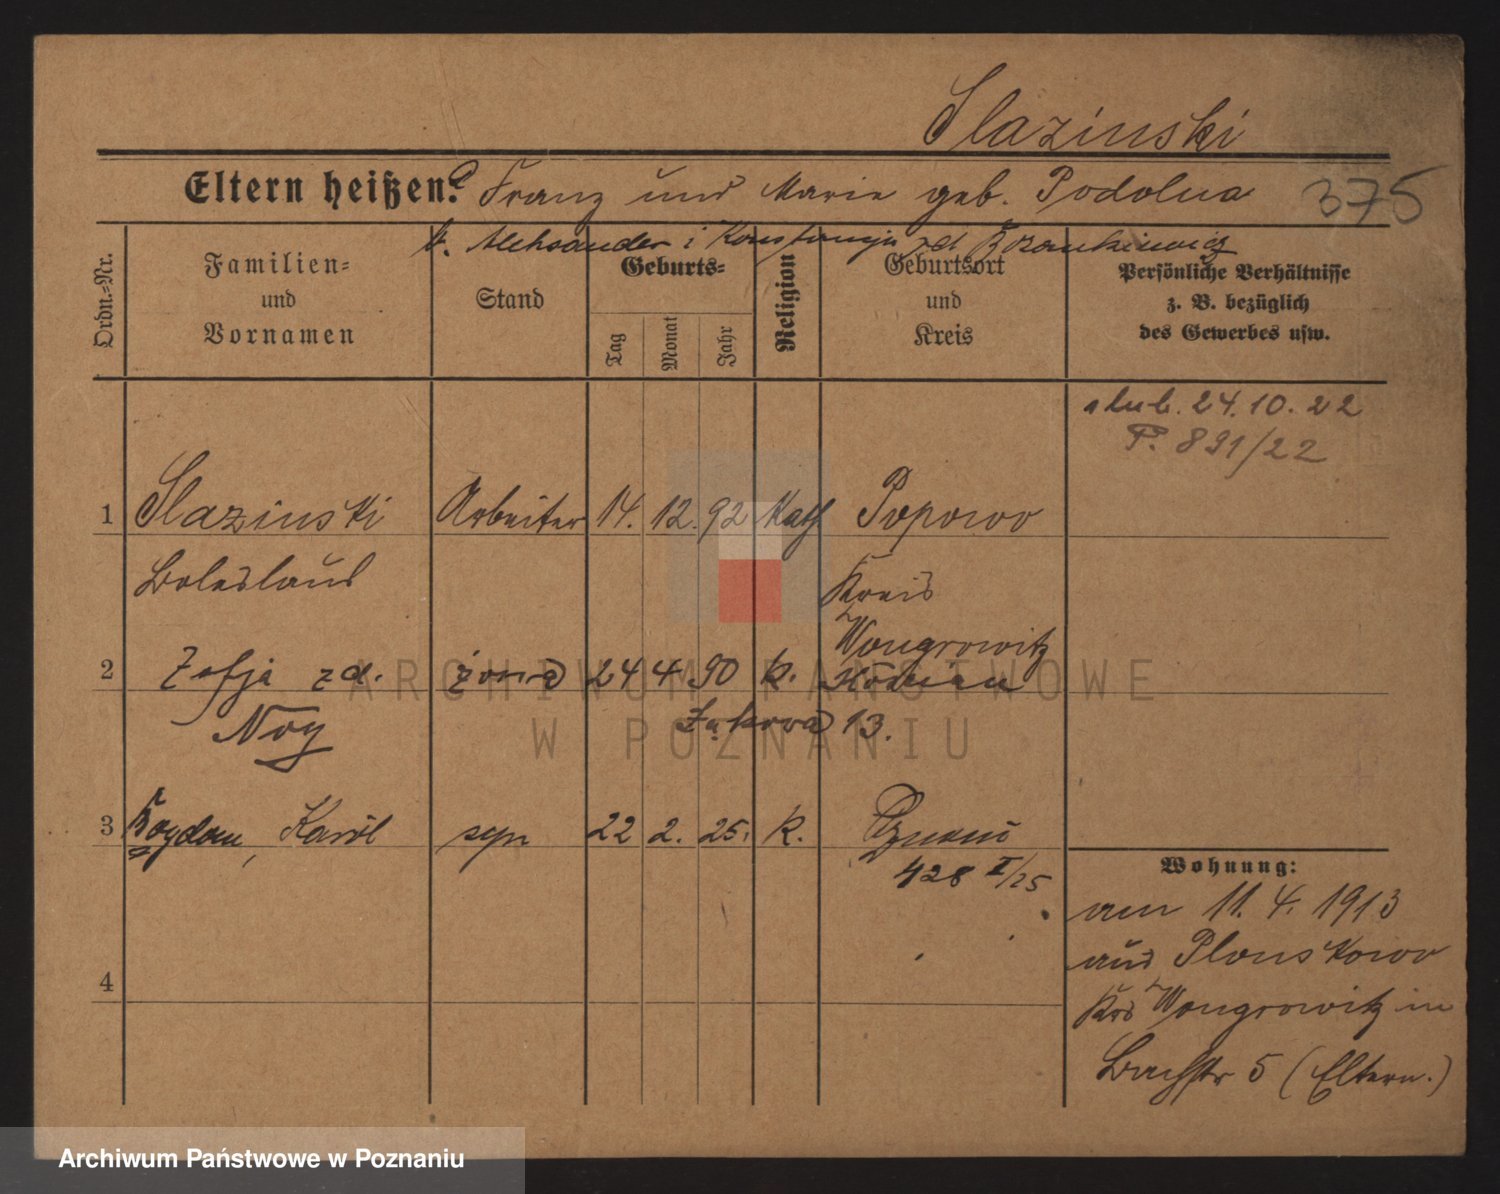 Slazinski
Eltern heißen? Franz und Marie geb. Podolna 375
Aleksander i Konstancja zd
Ordn.=Nr.
Familien=
und
Vornamen
Stand
Geburts=
Tag
Monat
Jahr
Religion
Geburtsort
und
Kreis
Persönliche Verhältnisse
z. B. bezüglich
des Gewerbes usw.
slub. 24.10.22
P. 891/22
1 Slazinski Arbeiter 14. 12. 92 Kath Popowo
Boleslaus Kreis
Wongrowitz
2 Zofja zd. żona 24 4 90 k.
Noy 13.
3 Bogdan, Karól syn 22 2. 25. k. Poznań
428 I/25
4
Wohnung:
am 11. 4. 1913
aus Plonskowo
Krs Wongrowitz in
Bachstr 5 (Eltern.)
ARCHIWUM PAŃSTWOWE
W POZNANIU
Archiwum Państwowe w Poznaniu